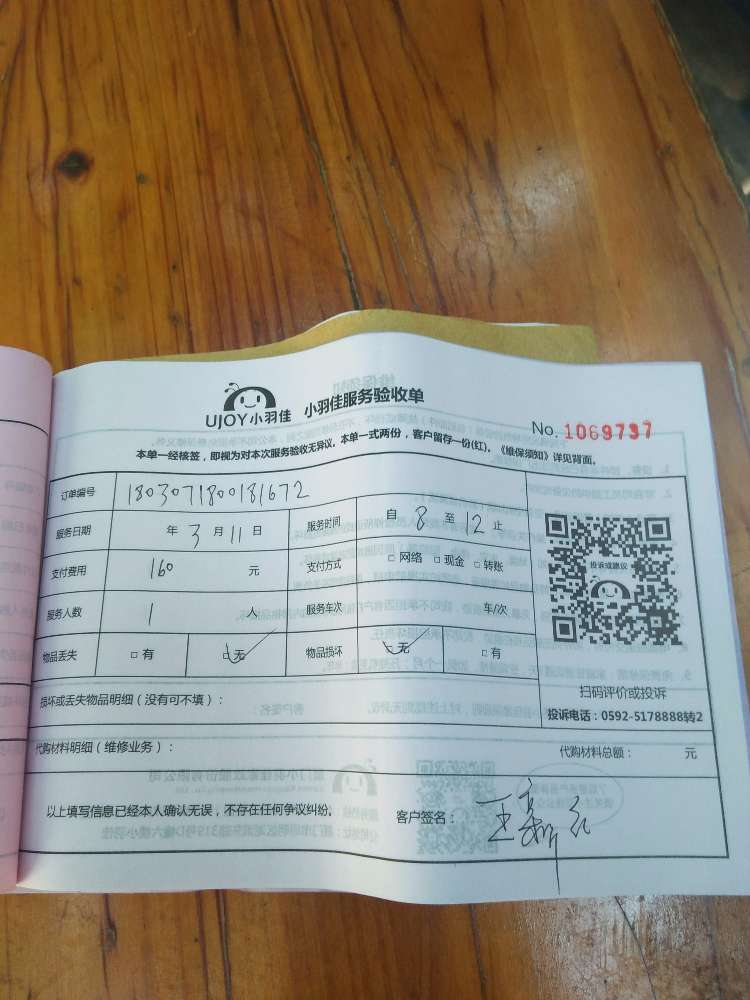 UJOY小羽佳 小羽佳服务验收单
No. 1069737
本单一经核签，即视为对本次服务验收无异议。本单一式两份，客户留存一份(红)。《维保须知》详见背面。
订单编号 1803071800181672
服务日期 年 3 月 11 日 服务时间 自 8 至 12 止
支付费用 160 元 支付方式 □ 网络 □ 现金 □ 转账
服务人数 1 人 服务车次 车/次
物品丢失 □ 有 □ 无 物品损坏 □ 无 □ 有
投诉或建议
扫码评价或投诉
投诉电话：0592-5178888转2
损坏或丢失物品明细（没有可不填）：
代购材料明细（维修业务）： 代购材料总额： 元
以上填写信息已经本人确认无误，不存在任何争议纠纷。 客户签名：